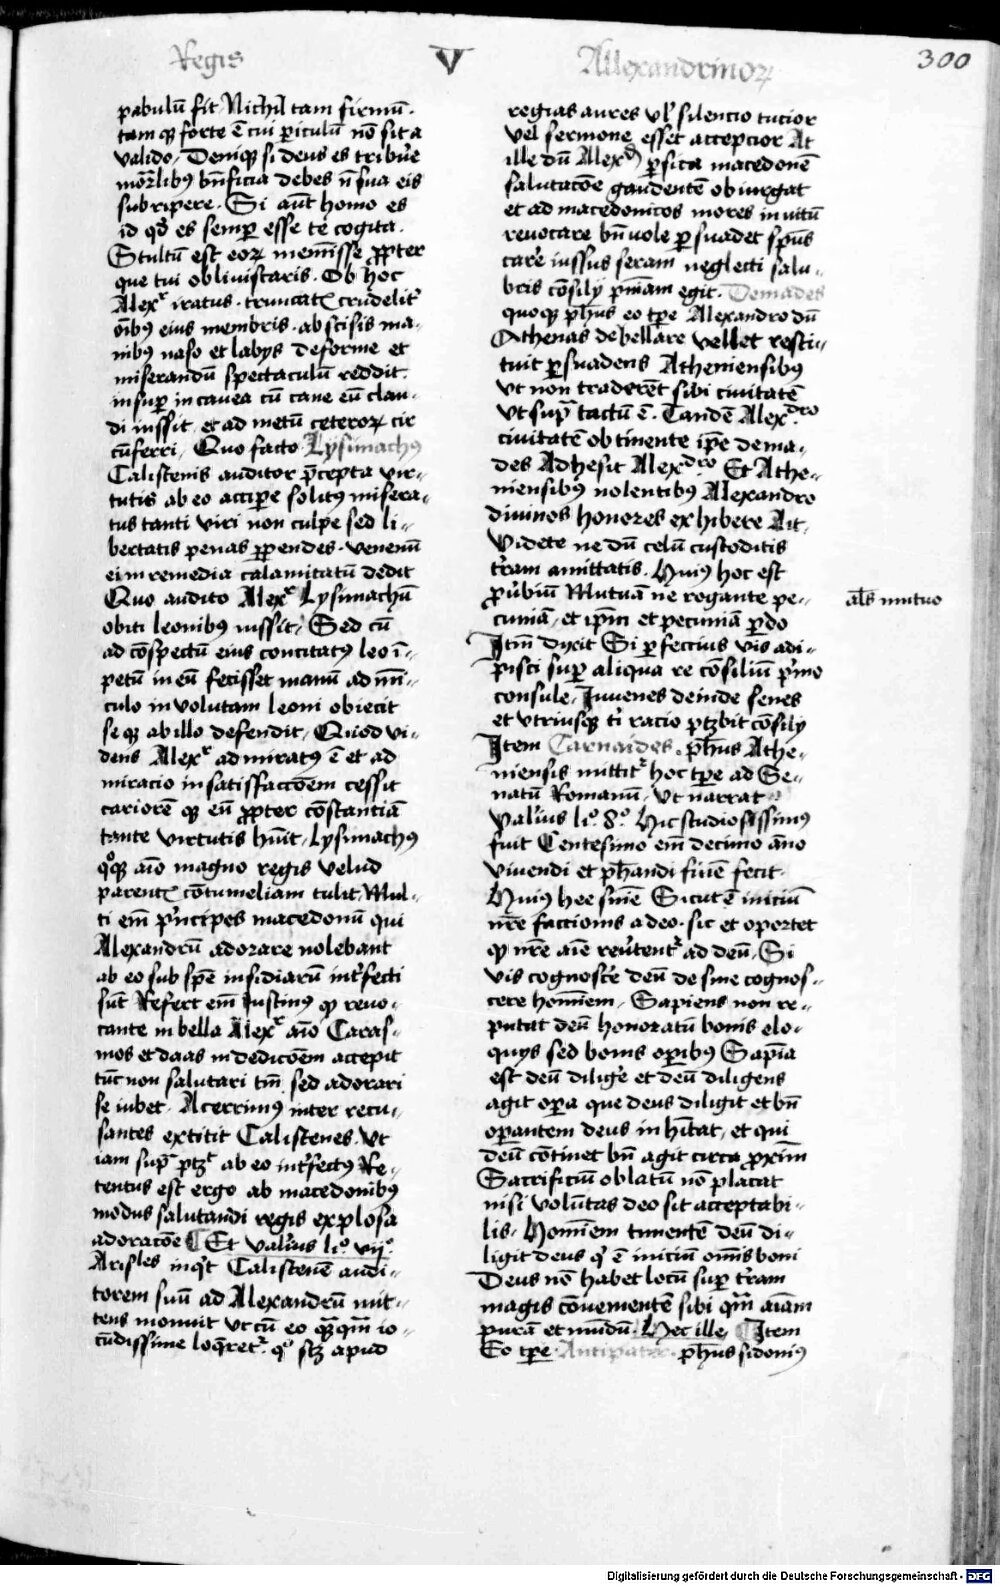 Regis V Allexandrinoꝝ 300
pabulū fit Nichil tam firmū
tam qꝫ forte ē cui piculū nō sit a
valido / Deniqꝫ si deus es tribue
mōrlibꝰ bn̄ficia debes n̄ sua eis
subripere · Si aut̄ homo es
id qd̓ es semp esse te cogita ·
Stultū est eoꝝ meīnisse ꝓpter
que tui obliviscaris · Ob hoc
Alexr iratus · truncatꝭ crudelit̓
oībꝰ eius membris · abscisis ma-
nibꝰ naso et labijs deforme et
miserandū spectaculū reddit ·
insup in cavea cū cane eū clau-
di iussit et ad metū ceteroꝝ cir
cūferri / Quo facto Lysimachꝰ
Calistenis auditor p̄cepta vir-
tutis ab eo accipe solitꝰ misera-
tus tanti viri non culpe sed li-
bertatis penas ꝓpendes · venenū
ei in remedia calamitatū dedit
Quo audito Alexr Lysimachū
obici leonibꝰ iussit / Sed cū
ad cōspectū eius concitatꝰ leo ī-
petū in eū fecisset manū ad mīi-
culo involutam leoni obiecit
seqꝫ ab illo defendit / Quod vi-
dens Alexr admiratꝰ ē et ad
miracio in satisfaccōem cessit
cariorē qꝫ eū ꝓpter cōstantiā
tante virtutis hūit / Lysimachꝰ
qͦqꝫ aīo magno regis velud
parentꝭ cōtumeliam tulit / Mul-
ti em̄ p̓ncipes macedonū qui
Alexandrū adorare nolebant
ab eo sub spē insidiarū int̓fecti
sūt Refert em̄ Justinꝰ qꝫ revo-
cante in bella Alexr aīo Caras-
mos et daas in dedicōem accepit
tūc non salutari tm̄ sed adorari
se iubet · Acerrimꝰ inter recu-
santes extitit Calistenes · Vt
iam sup̄ ptꝫ ab eo int̓fectꝰ Re-
tentus est ergo ab macedonibꝰ
modus salutandi regis explosa
adoracōe Et Val̓ius liͦ viiͦ
Arisꝉes inqͭ Calistenē audi-
torem suū ad Alexandrū mit-
tens monuit vt cū eo qꝫqm̄ io-
cūdissime loqret̓ · qͦ stꝫ apud
regias aures vꝉ silencio tucior
vel sermone esset accepcior At
ille dū Alexd̓ psica macedonē
salutacōe gaudentē obiurgat
et ad macedonicos mores invitū
revocare bn̄vole psuadet sp̄us
care iussus seram neglecti salu-
bris cōsilij pn̄iam egit · Demades
quoqꝫ ph̄us eo tpe Alexandro dū
Athenas debellare vellet resti-
tuit psuadens Atheniensibꝰ
vt non traderēt sibi civitatē
vt sup̄ tactū ē · Tandē Alexdro
civitatē obtinente ip̄e dema-
des Adhesit Alexdro Et Athe-
niensibꝰ nolentibꝰ Alexandro
divinos honores exhibere Ait
Videte ne dū celū custoditis
t̓ram amittatis · Huiꝰ hoc est
ꝓu̓biū Mutuā ne rogante pe-
cuniā / et ip̄m et pecuniā pdo
als mutuo
Itm̄ dixit Si pfectius vis adi-
pisci sup aliqua re cōsiliū p̓mo
consule / Juvenes deinde senes
et vtriusqꝫ ti racio ptꝫbit cōsilij
Item Carnaides · ph̄us Athe-
niensis mittit̓ hoc tpe ad Se-
natū Romanū / Vt narrat
Valius liͦ 8ͦ Hic studiosissimꝰ
fuit Centesimo em̄ decimo āno
vivendi et ph̄andi finē fecit ·
Huiꝰ hee sn̄ie Sicut ē iniciū
nr̄e faccionis a deo · sic et oportet
qꝫ nr̄e aīe reu̓tent̓ ad deū / Si
vis cognosce deū desine cognos-
cere hoīnem / Sapiens non re-
putat deū honoratū bonis elo-
quijs sed bonis opibꝰ Sapīa
est deū dilige̓ et deū diligens
agit opa que deus diligit et bn̄
opantem deus inhītat / et qui
deū cōtinet bn̄ agit circa ꝓxim̄
Sacrificiū oblatū nō placat
nisi volūtas deo sit acceptabi-
lis · Hoīnem timentē deū di-
ligit deus qͥ ē iniciū omīs boni
Deus nō habet locū sup t̓ram
magis cōvenientē sibi qm̄ aīam
purā et mūdū · Hec ille Item
Eo tpe Antipater · ph̄us sidoniꝰ
Digitalisierung gefördert durch die Deutsche Forschungsgemeinschaft - DFG